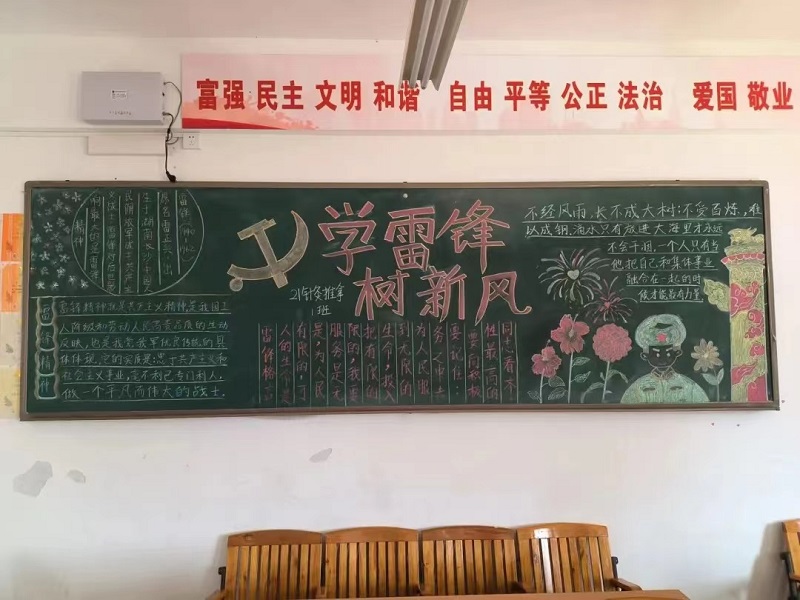 富强 民主 文明 和谐 自由 平等 公正 法治 爱国 敬业
精神
学雷锋
树新风
21针灸推拿
1班
雷锋精神
雷锋精神就是共产主义精神,是我国工
人阶级和劳动人民高贵品质的生动
反映,也是我党我军优良传统的具
体体现,它的实质是:忠于共产主义和
社会主义事业,毫不利己专门利人,
做一个平凡而伟大的战士.
要记住:
务之中去
为人民服
到无限的
生命,投入
把有限的
限的,我要
服务是无
是,为人民
有限的,可
人的生命是
雷锋格言
不经风雨,长不成大树;不受百炼,难
以成钢,滴水只有放进大海里才永远
不会干涸,一个人只有当
他把自己和集体事业
融合在一起的时
候才能最有力量